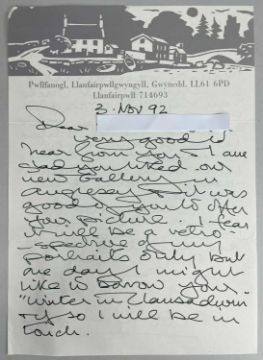 Pwllfanogl, Llanfairpwllgwyngyll, Gwynedd. LL61 6PD
Llanfairpwll 714693
3. NOV 92
Dear
very good to
hear from you. I am
glad you liked our
new Gallery on
Anglesey & it was
good of you to offer
your picture. I fear
it will be a retro-
-spective of my
portraits only but
one day I might
like to borrow your
"Winter in Llansadwrn"
& if so I will be in
touch.